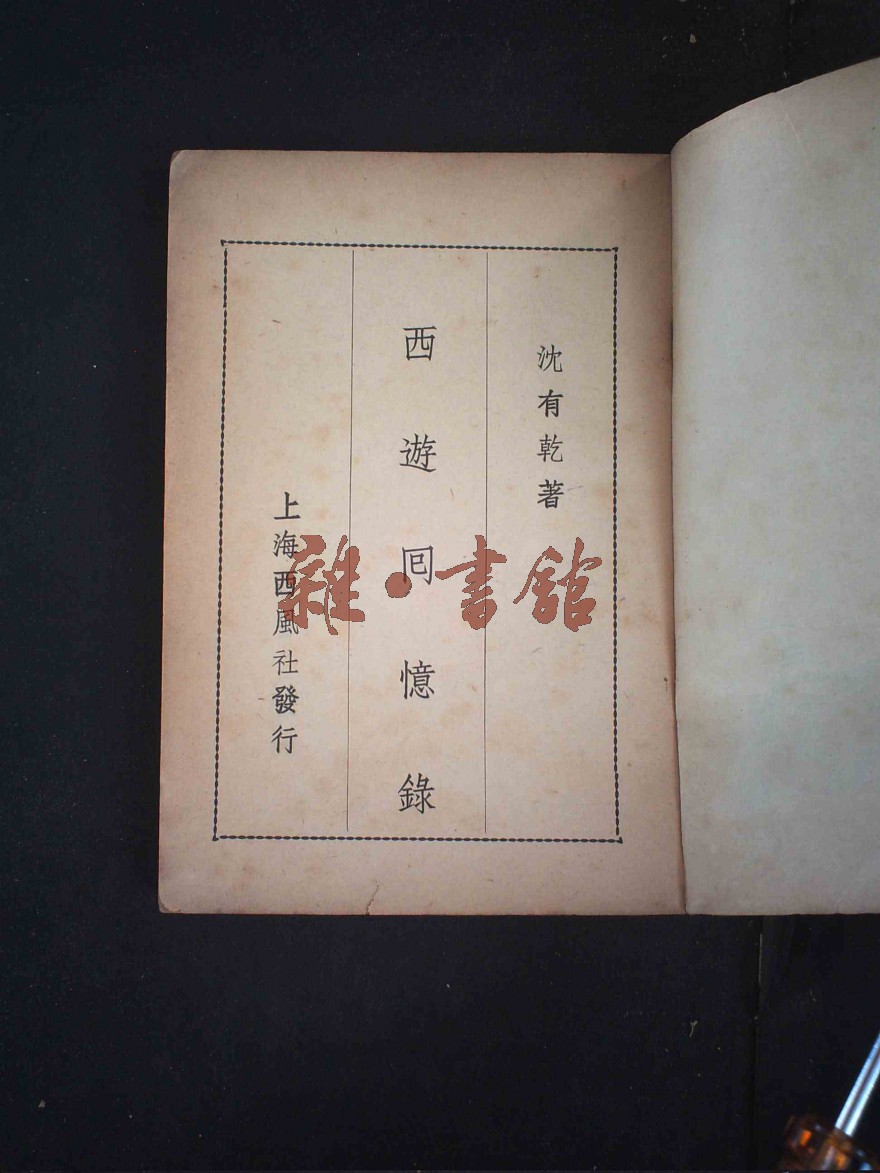 沈有乾著
西遊囘憶錄
上海西風社發行
雜·書館